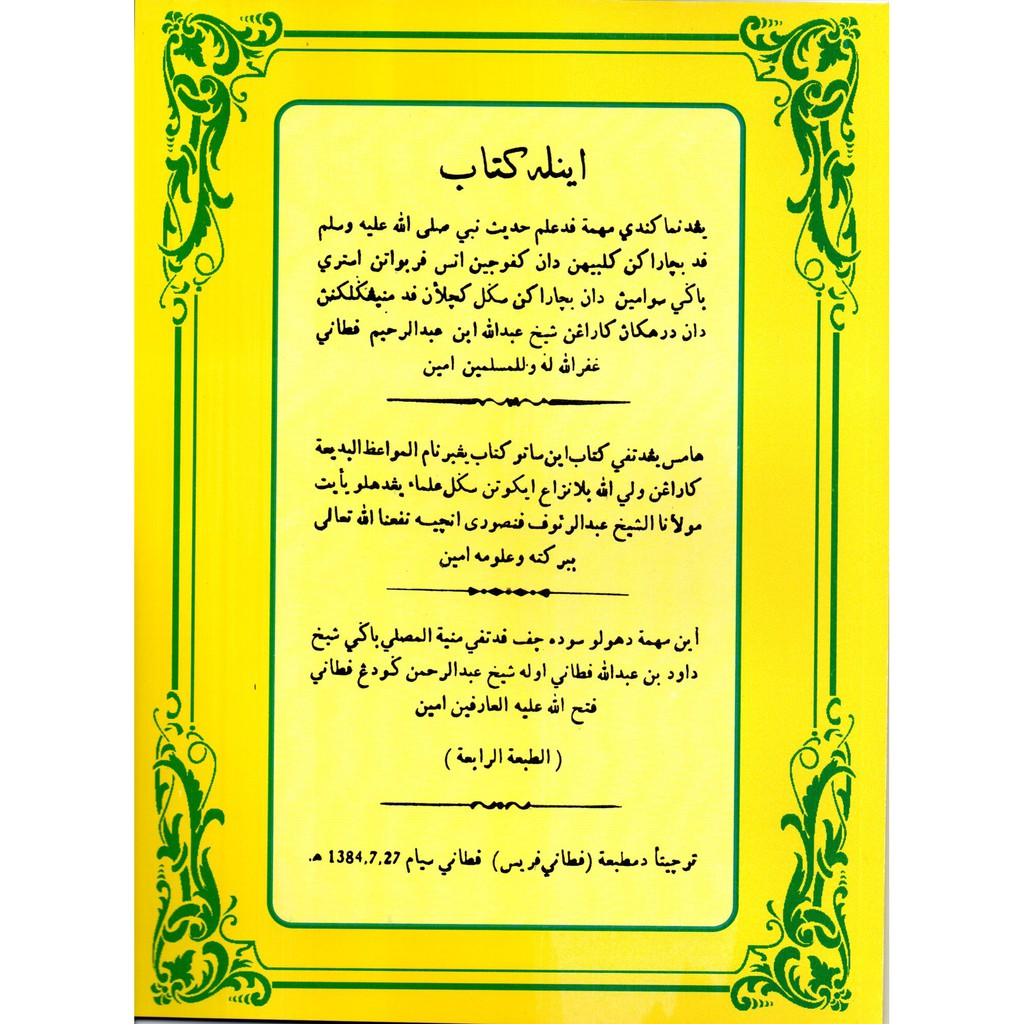 اينله كتاب
يڠدنما كندي مهمة فدعلم حديث نبي صلى الله عليه وسلم
فد بچاراكن كلبيهن دان كفوجين اتس فربواتن استري
باݢي سوامين دان بچاراكن سݢل كچلأن فد منيڠݢلكنڽ
دان درهكان كاراڠن شيخ عبدالله ابن عبدالرحيم فطاني
غفرالله له وللمسلمين امين
هامس يڠدتفي كتاب اين ساتو كتاب يڠبرنام المواعظ البديعة
كاراڠن ولي الله بلانزاع ايكوتن سݢل علماء يڠدهلو يأيت
مولانا الشيخ عبدالرئوف فنصورى انچيه نفعنا الله تعالى
ببركته وعلومه امين
أين مهمة دهولو سوده چف فدتفي منية المصلي باݢي شيخ
داود بن عبدالله فطاني اوله شيخ عبدالرحمن ݢودڠ فطاني
فتح الله عليه العارفين امين
( الطبعة الرابعة )
ترچيتأ دمطبعة (فطاني فريس) فطاني سيام 1384,7,27 ه.